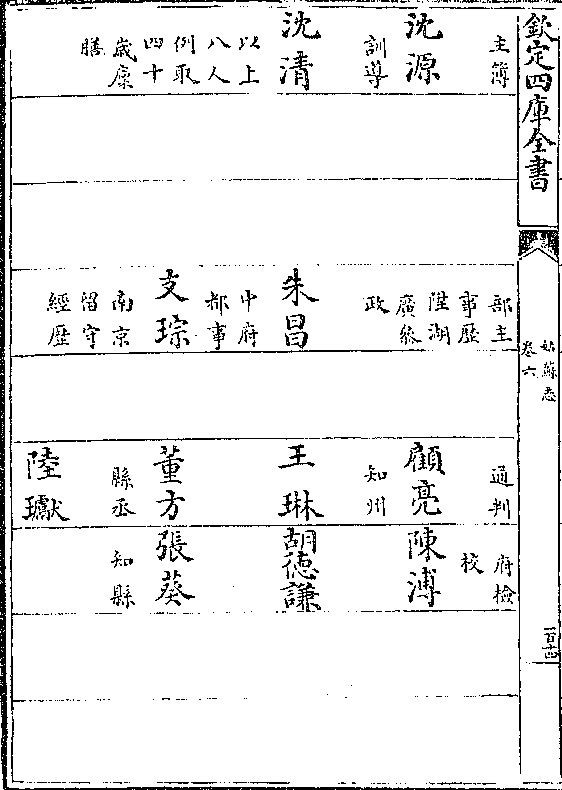 欽定四庫全書
姑蘇志
卷六
主簿
沈源
訓導
沈清
以上
八人
例取
四十
歲廩
膳
部主
事歷
陞湖
廣參
政
朱昌
中府
都事
支琮
南京
留守
經歷
通判
顧亮
知州
王琳
董方
縣丞
陸瓛
府檢
校
陳溥
胡德謙
張葵
知縣